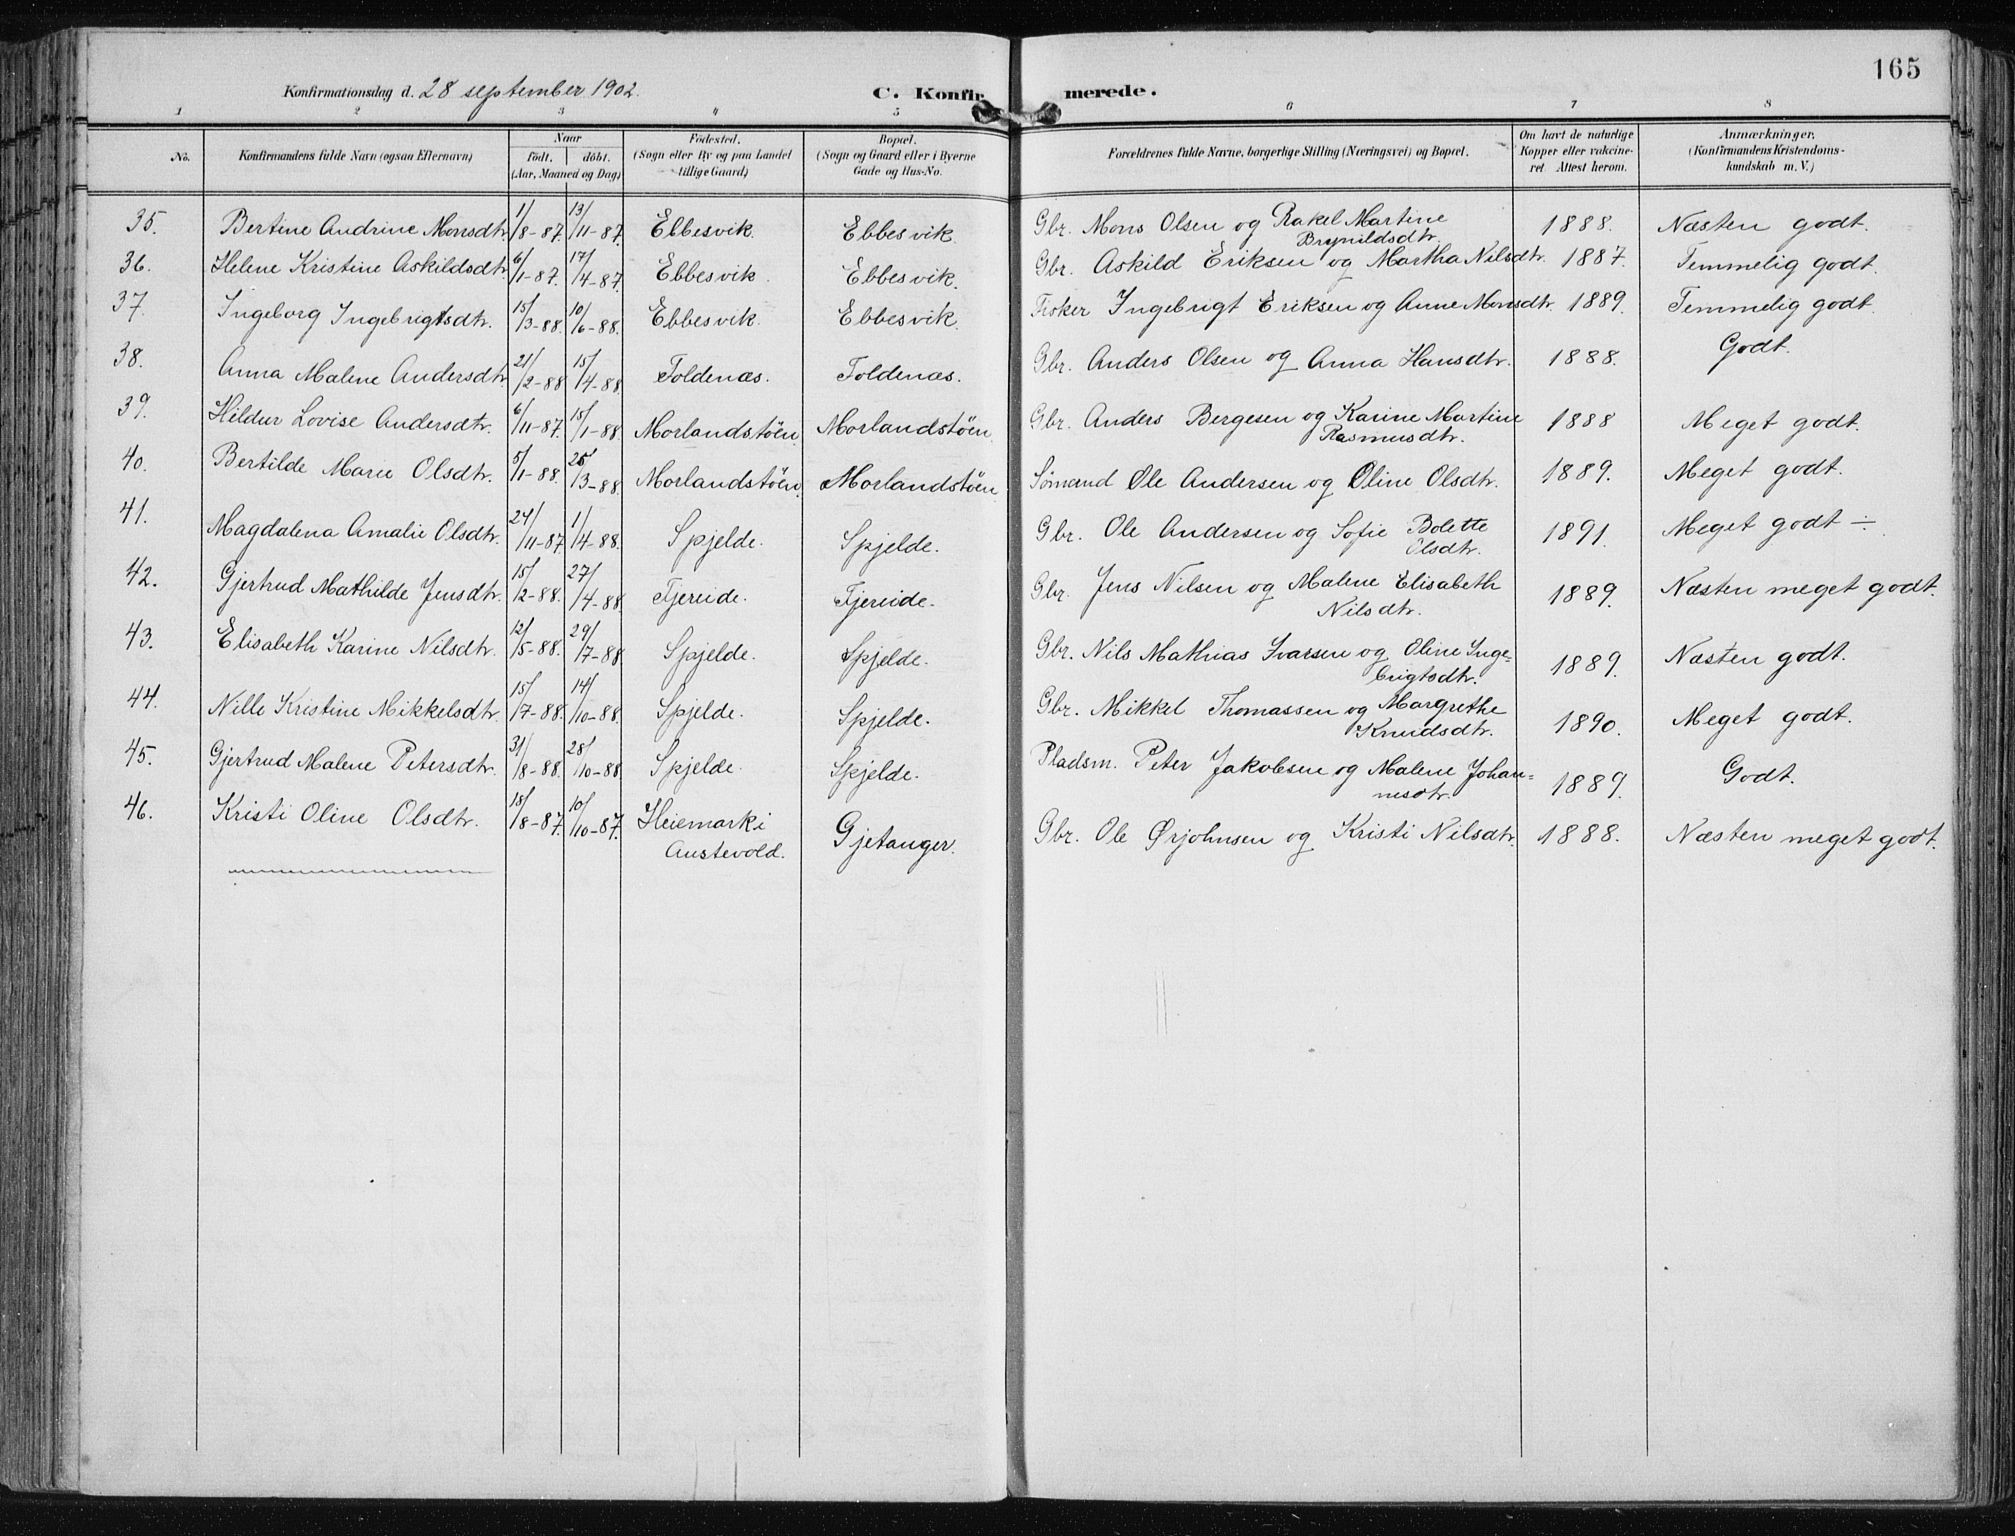 165
Konfirmationsdag d. 28 september 1902.
C. Konfirmerede.
1 2 3 4 5 6 7 8
No. Konfirmandens fulde Navn (ogsaa Efternavn) Naar født. døbt. (Aar, Maaned og Dag) Fødested. (Sogn eller By og paa Landet tillige Gaard) Bopæl. (Sogn og Gaard eller i Byerne Gade og Hus-No. Forældrenes fulde Navne, borgerlige Stilling (Næringsvei) og Bopæl. Om havt de naturlige Kopper eller vakcineret Attest herom. Anmærkninger. (Konfirmandens Kristendomskundskab m. V.)
35. Bertine Andrine Monsdtr. 1/8-87. 13/11-87. Ebbesvik. Ebbesvik. Gbr. Mons Olsen og Rakel Martine Brynildsdtr. 1888. Næsten godt.
36. Helene Kristine Askildsdtr. 6/1-87. 17/4-87. Ebbesvik. Ebbesvik. Gbr. Askild Eriksen og Martha Nilsdtr. 1887. Temmelig godt.
37. Ingeborg Ingebrigtsdtr. 15/3-88. 10/6-88. Ebbesvik. Ebbesvik. Fisker Ingebrigt Eriksen og Anne Monsdtr. 1889. Temmelig godt.
38. Anna Malene Andersdtr. 21/2-88 15/4-88 Toldenæs. Toldenæs. Gbr. Anders Olsen og Anna Hansdtr. 1888. Godt.
39. Hildur Lovise Andersdtr. 6/11-87. 15/1-88. Morlandstøen. Morlandstøen. Gbr. Anders Bergesen og Karine Martine Rasmusdtr. 1888 Meget godt.
40. Bertilde Marie Olsdtr. 5/1-88. 25/3-88. Morlandstøen. Morlandstøen. Sømand Ole Andersen og Oline Olsdtr. 1889. Meget godt.
41. Magdalena Amalie Olsdtr. 24/11-87. 1/4-88. Spjelde. Spjelde. Gbr. Ole Andersen og Sofie Bolette Olsdtr. 1891. Meget godt ÷
42. Gjertrud Mathilde Jensdtr. 15/2-88. 27/4-88. Fjereide. Fjereide. Gbr. Jens Nilsen og Malene Elisabeth Nilsdtr. 1889. Næsten meget godt.
43. Elisabeth Karine Nilsdtr. 12/5-88. 29/7-88. Spjelde. Spjelde. Gbr. Nils Mathias Ivarsen og Oline Ingebrigtsdtr. 1889. Næsten godt.
44. Nille Kristine Mikkelsdtr. 15/7-88. 14/10-88. Spjelde. Spjelde. Gbr. Mikkel Thomassen og Margrethe Knudsdtr. 1890. Meget godt.
45. Gjertrud Malene Petersdtr. 31/8-88. 28/10-88. Spjelde. Spjelde. Pladsm. Peter Jakobsen og Malene Johannesdtr. 1889. Godt.
46. Kristi Oline Olsdtr. 18/8-87. 10/10-87. Heiemark i Austevold. Gjetanger. Gbr. Ole Ørjohnsen og Kristi Nilsdtr. 1888. Næsten meget godt.